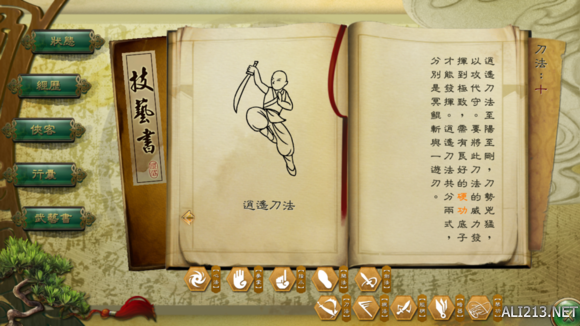 狀態
經歷
俠客
行囊
技藝書
技藝書
逍遙刀法
刀法：十
逍遙刀法至陽至剛，刀勢兇猛，
以攻代守。要將此刀法的威力發
揮到極致，需有良好的硬功底子
才能發揮。逍遙刀法共分兩式，
分別是冥鯤斬與一遊刃。
ALI213.NET